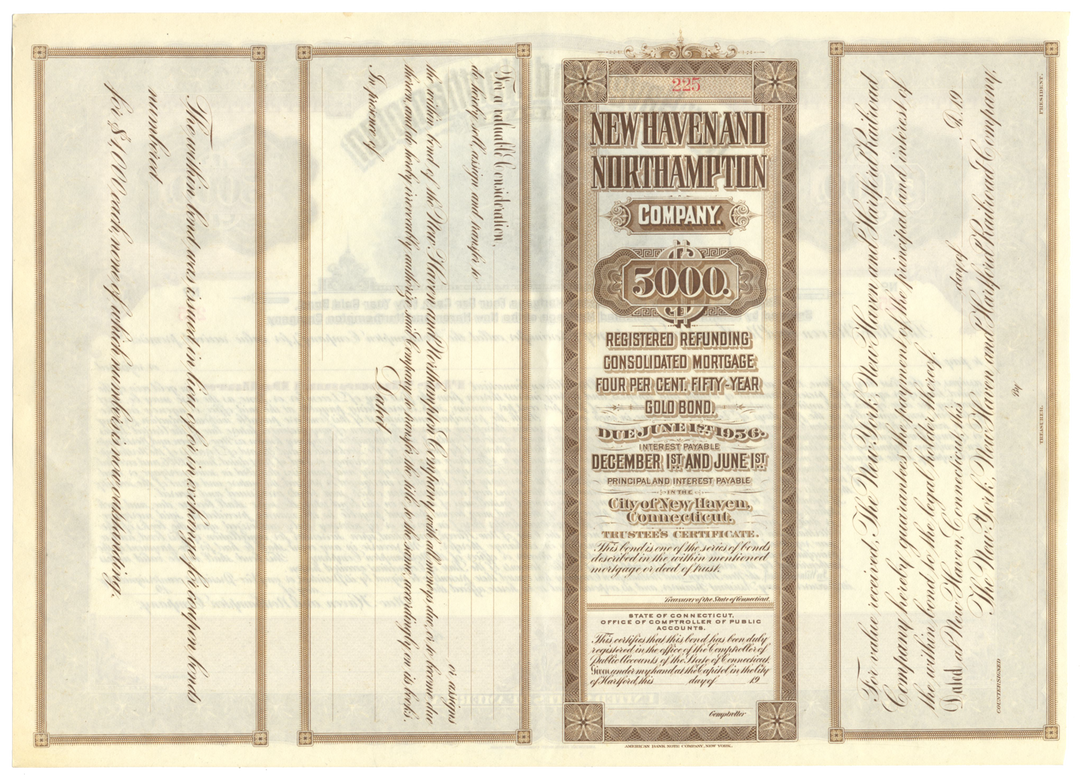 225
NEW HAVEN AND
NORTHAMPTON
COMPANY.
5000.
REGISTERED REFUNDING
CONSOLIDATED MORTGAGE
FOUR PER CENT. FIFTY-YEAR
GOLD BOND.
DUE JUNE 1ST 1956.
INTEREST PAYABLE
DECEMBER 1ST AND JUNE 1ST
PRINCIPAL AND INTEREST PAYABLE
IN THE
City of New Haven,
Connecticut.
TRUSTEE'S CERTIFICATE.
This bond is one of the series of bonds
described in the within mentioned
mortgage or deed of trust.
Treasurer of the State of Connecticut.
STATE OF CONNECTICUT,
OFFICE OF COMPTROLLER OF PUBLIC
ACCOUNTS.
This certifies that this bond has been duly
registered in the office of the Comptroller of
Public Accounts of the State of Connecticut.
Given under my hand at the Capitol in the City
of Hartford, this day of 19
Comptroller
AMERICAN BANK NOTE COMPANY, NEW YORK.
For value received, The New York, New Haven and Hartford Railroad
Company hereby guarantees the payment of the principal and interest of
the within bond to the legal holder thereof.
Dated at New Haven, Connecticut, this day of A.D. 19
The New York, New Haven and Hartford Railroad Company,
By
PRESIDENT.
COUNTERSIGNED
TREASURER.
For a valuable Consideration,
do hereby sell, assign and transfer to
or assigns
the within bond of the New Haven and Northampton Company with all moneys due, or to become due
thereon and do hereby irrevocably authorize said Company to transfer the title to the same, accordingly, on its books.
Dated
In presence of
The within bond was issued in lieu of or in exchange for coupon bonds
numbered
for $1,000 each, none of which numbers is now outstanding.